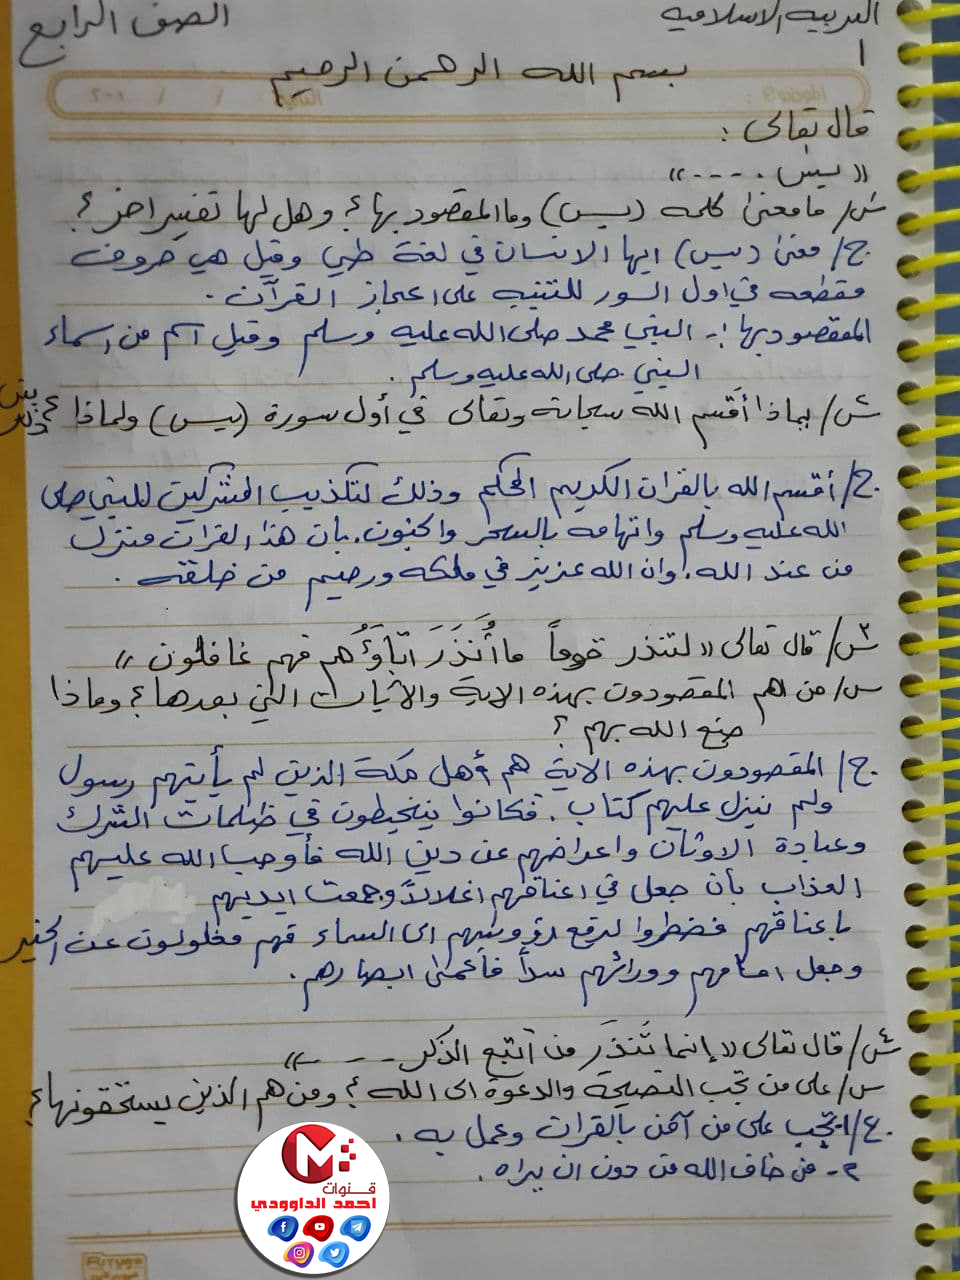 التربية الاسلامية
الصف الرابع
١
بسم الله الرحمن الرحيم
قال تعالى :
« يس . - - - »
س١/ ما معنى كلمة (يس) وما المقصود بها ؟ وهل لها تفسير اخر ؟
ج/ معنى (يس) ايها الانسان في لغة طي وقيل هي حروف
مقطعه في اول السور للتنبيه على اعجاز القرآن .
المقصود بها :- النبي محمد صلى الله عليه وسلم وقيل اسم من اسماء
النبي صلى الله عليه وسلم .
س٢/ بماذا أقسم الله سبحانه وتعالى في أول سورة (يس) ولماذا ؟ بين ذلك
ج/ أقسم الله بالقران الكريم المحكم وذلك لتكذيب المشركين للنبي صلى
الله عليه وسلم واتهامه بالسحر والجنون . بان هذا القران منزل
من عند الله . وان الله عزيز في ملكه ورحيم من خلقه .
س٣/ قال تعالى « لتنذر قوماً ما أُنذَرَ آبَاؤُهم فهم غافلون »
س/ من هم المقصودون بهذه الاية والآيات التي بعدها ؟ وماذا
صنع الله بهم ؟
ج/ المقصودون بهذه الاية هم أهل مكة الذين لم يأيتهم رسول
ولم ينزل عليهم كتاب . فكانوا يتخبطون في ظلمات الشرك
وعبادة الاوثان واعراضهم عن دين الله فأوجب الله عليهم
العذاب بأن جعل في اعناقهم اغلالاً وجمعت ايديهم
باعناقهم فضطروا لرفع رؤوسهم الى السماء فهم مغلولون عن الخير
وجعل امامهم وورائهم سداً فأعمى ابصارهم .
س٤/ قال تعالى « إنما تُنذَر من اتبع الذكر - - - »
س/ على من تجب النصيحة والدعوة الى الله ؟ ومن هم الذين يستحقونها ؟
ج/ ١- تجب على من آمن بالقران وعمل به .
٢- من خاف الله من دون ان يراه .
M
قنوات
احمد الداوودي